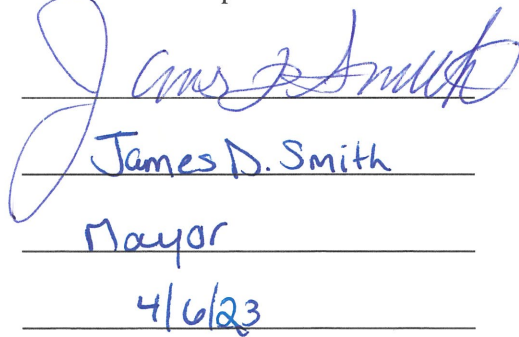 James D Smith
James D. Smith
Mayor
4/6/23